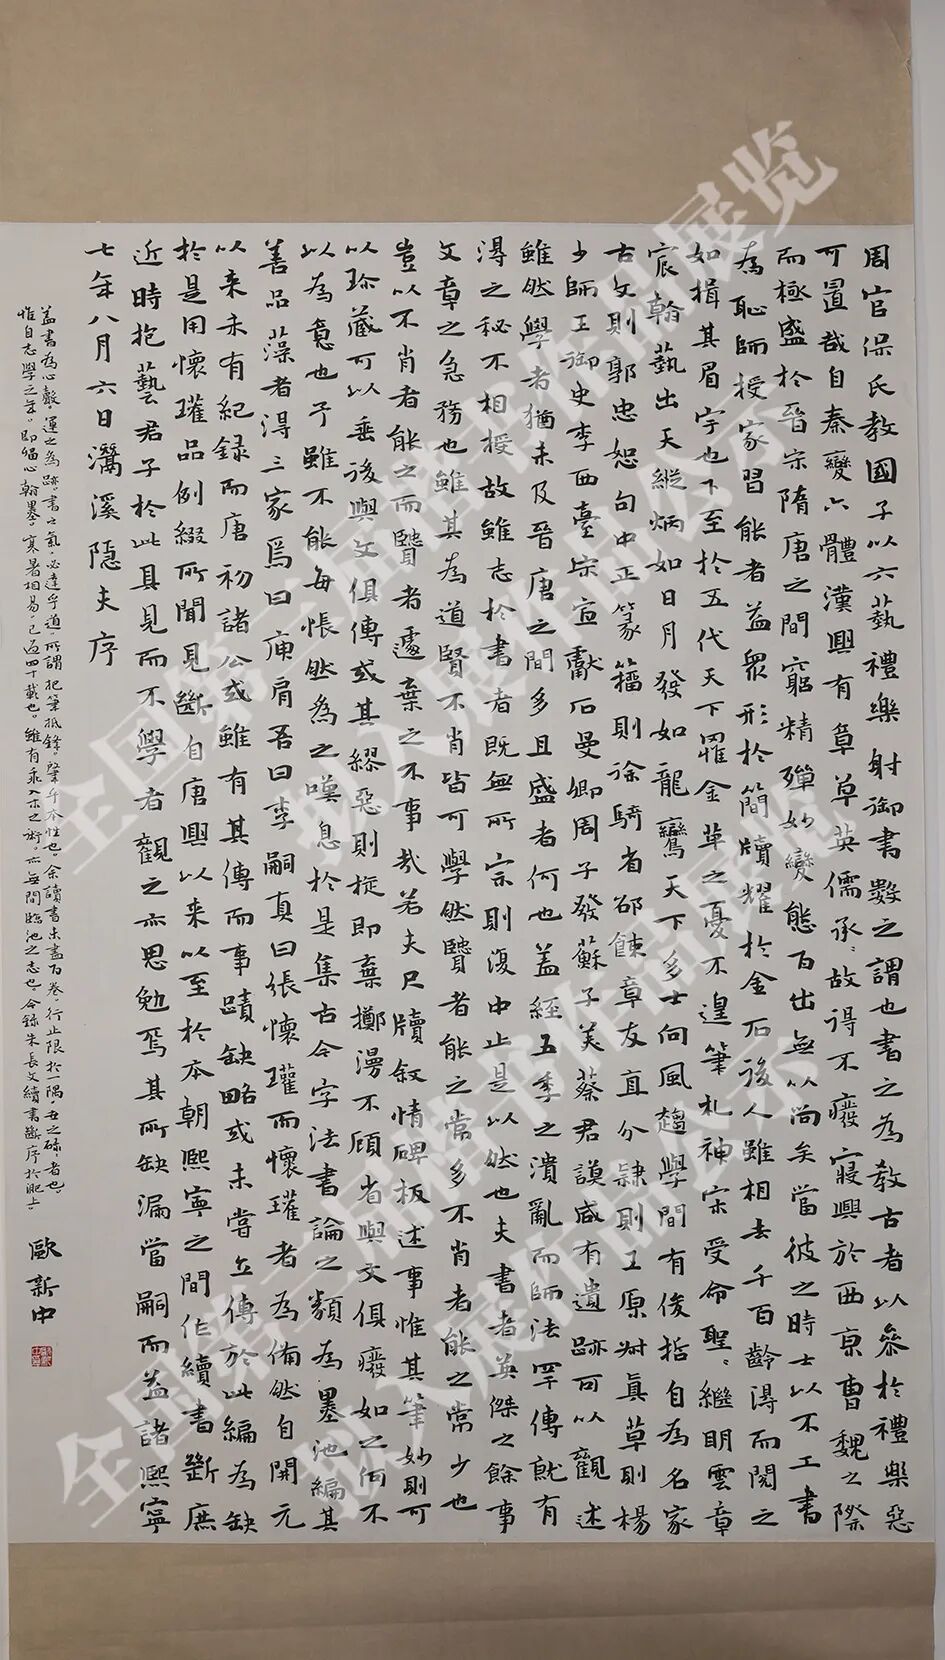 周官保氏教國子以六藝禮樂射御書數之謂也書之為教古者以參於禮樂惡
可置哉自秦變六體漢興有章草英儒承承故得不廢寢興於西京曹魏之際
而極盛於晉宋隋唐之間窮精殫妙變態百出無以尚矣當彼之時士以不工書
為恥師授家習能者益眾形於簡牘耀於金石後人雖相去千百齡得而閱之
如揖其眉宇也下至於五代天下罹金革之憂不遑筆札神宋受命聖聖繼明雲章
宸翰藝出天縱炳如日月發如龍鸞天下多士向風趨學間有俊括自為名家
古文則郭忠恕句中正篆籀則徐騎省邵餗章友直分隸則王原叔真草則楊
少師王御史李西臺宋宣獻石曼卿周子發蘇子美蔡君謨咸有遺跡可以觀述
雖然學者猶未及晉唐之間多且盛者何也蓋經五季之潰亂而師法罕傳就有
得之秘不相授故雖志於書者既無所宗則復中止是以然也夫書者英傑之餘事
文章之急務也雖其為道賢不肖皆可學然賢者能之常多不肖者能之常少也
豈以不肖者能之而賢者遽棄之不事哉若夫尺牘敘情碑板述事惟其筆妙則可
以珍藏可以垂後與文俱傳或其繆惡則旋即棄擲漫不顧省與文俱廢如之何不
以為意也予雖不能每悵然為之嘆息於是集古今字法書論之類為墨池編其
善品藻者得三家焉曰庾肩吾曰李嗣真曰張懷瓘而懷瓘者為備然自開元
以來未有紀録而唐初諸公或雖有其傳而事蹟缺略或未嘗立傳於此編為缺
於是用懷瓘品例綴所聞見斷自唐興以來以至於本朝熙寧之間作續書斷庶
近時抱藝君子於此具見而不學者觀之亦思勉焉其所缺漏當嗣而益諸熙寧
七年八月六日灊溪隱夫序
蓋書為心聲運之為跡書之氣必達乎道所謂把筆抵鋒肇乎本性也余讀書未盡百卷行止限於一隅丑之碌者也
惟自志學之年即留心翰墨寒暑相易已逾四十載也雖有乘入木之術亦無間臨池之志也今録朱長文續書斷序於肥上
歐新中
全国第三届楷书作品展览
拟入展作品公示
全国第三届楷书作品展览
拟入展作品公示